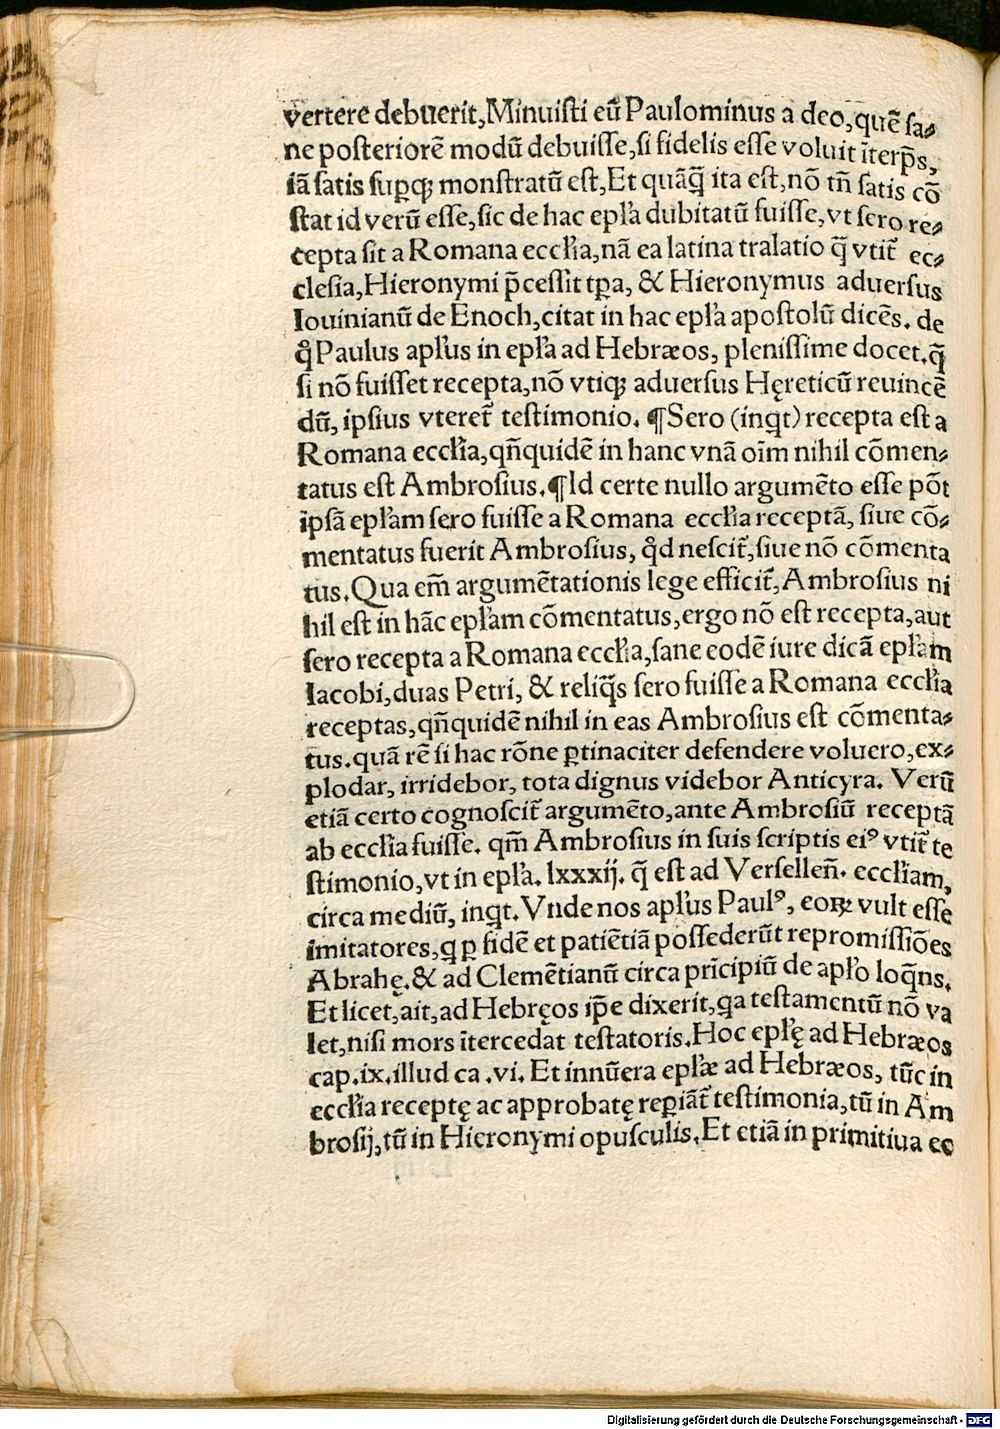 vertere debuerit,Minuisti eũ Paulominus a deo,quẽ sa⸗
ne posteriorẽ modũ debuisse,si fidelis esse voluit ĩterp̃s,
iã satis supꝙ monstratũ est,Et quãq̃ ita est,nõ tñ satis cõ
stat id verũ esse,sic de hac epl̃a dubitatũ fuisse,vt sero re⸗
cepta sit a Romana eccl̃ia,nã ea latina tralatio q̃ vtit᷑ ec⸗
clesia,Hieronymi p̃cessit tꝑa, & Hieronymus aduersus
Iouinianũ de Enoch,citat in hac epl̃a apostolũ dicẽs. de
q̊ Paulus apl̃us in epl̃a ad Hebræos, plenissime docet.q̃
si nõ fuisset recepta,nõ vtiꝙ aduersus Hęreticũ reuincẽ
dũ, ipsius vteret᷑ testimonio. ¶Sero (inqt) recepta est a
Romana eccl̃ia,qñquidẽ in hanc vnã oĩm nihil cõmen⸗
tatus est Ambrosius.¶Id certe nullo argumẽto esse põt
ipsã epl̃am sero fuisse a Romana eccl̃ia receptã, siue cõ⸗
mentatus fuerit Ambrosius, q̊d nescit᷑,siue nõ cõmenta
tus.Qua em̃ argumẽtationis lege efficit᷑,Ambrosius ni
hil est in hãc epl̃am cõmentatus,ergo nõ est recepta,aut
sero recepta a Romana eccl̃ia,sane eodẽ iure dicã epl̃am
Iacobi,duas Petri, & reliq̃s sero fuisse a Romana eccl̃ia
receptas,qñquidẽ nihil in eas Ambrosius est cõmenta⸗
tus.quã rẽ si hac rõne ꝑtinaciter defendere voluero,ex⸗
plodar, irridebor, tota dignus videbor Anticyra. Verũ
etiã certo cognoscit᷑ argumẽto,ante Ambrosiũ receptã
ab eccl̃ia fuisse. qm̃ Ambrosius in suis scriptis eiꝰ vtit᷑ te
stimonio,vt in epl̃a. lxxxij. q̃ est ad Versellen̄. eccl̃iam,
circa mediũ, inqt. Vnde nos apl̃us Paulꝰ, eoꝝ vult esse
imitatores,q ꝑ fidẽ et patiẽtiã possederũt repromissiões
Abrahę.& ad Clemẽtianũ circa prĩcipiũ de apl̃o loq̃ns.
Et licet,ait,ad Hebręos ip̃e dixerit,qa testamentũ nõ va
let,nisi mors ĩtercedat testatoris.Hoc epl̃ę ad Hebræos
cap.ix.illud ca .vi. Et innũera epl̃æ ad Hebræos, tũc in
eccl̃ia receptę ac approbatę reꝑiãt᷑ testimonia,tũ in Am
brosij,tũ in Hieronymi opusculis.Et etiã in primitiua ec
Digitalisierung gefördert durch die Deutsche Forschungsgemeinschaft - DFG